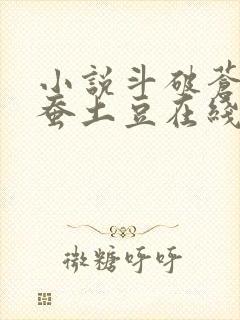 小說斗破蒼
蚕土豆在綫
微糖呼呼